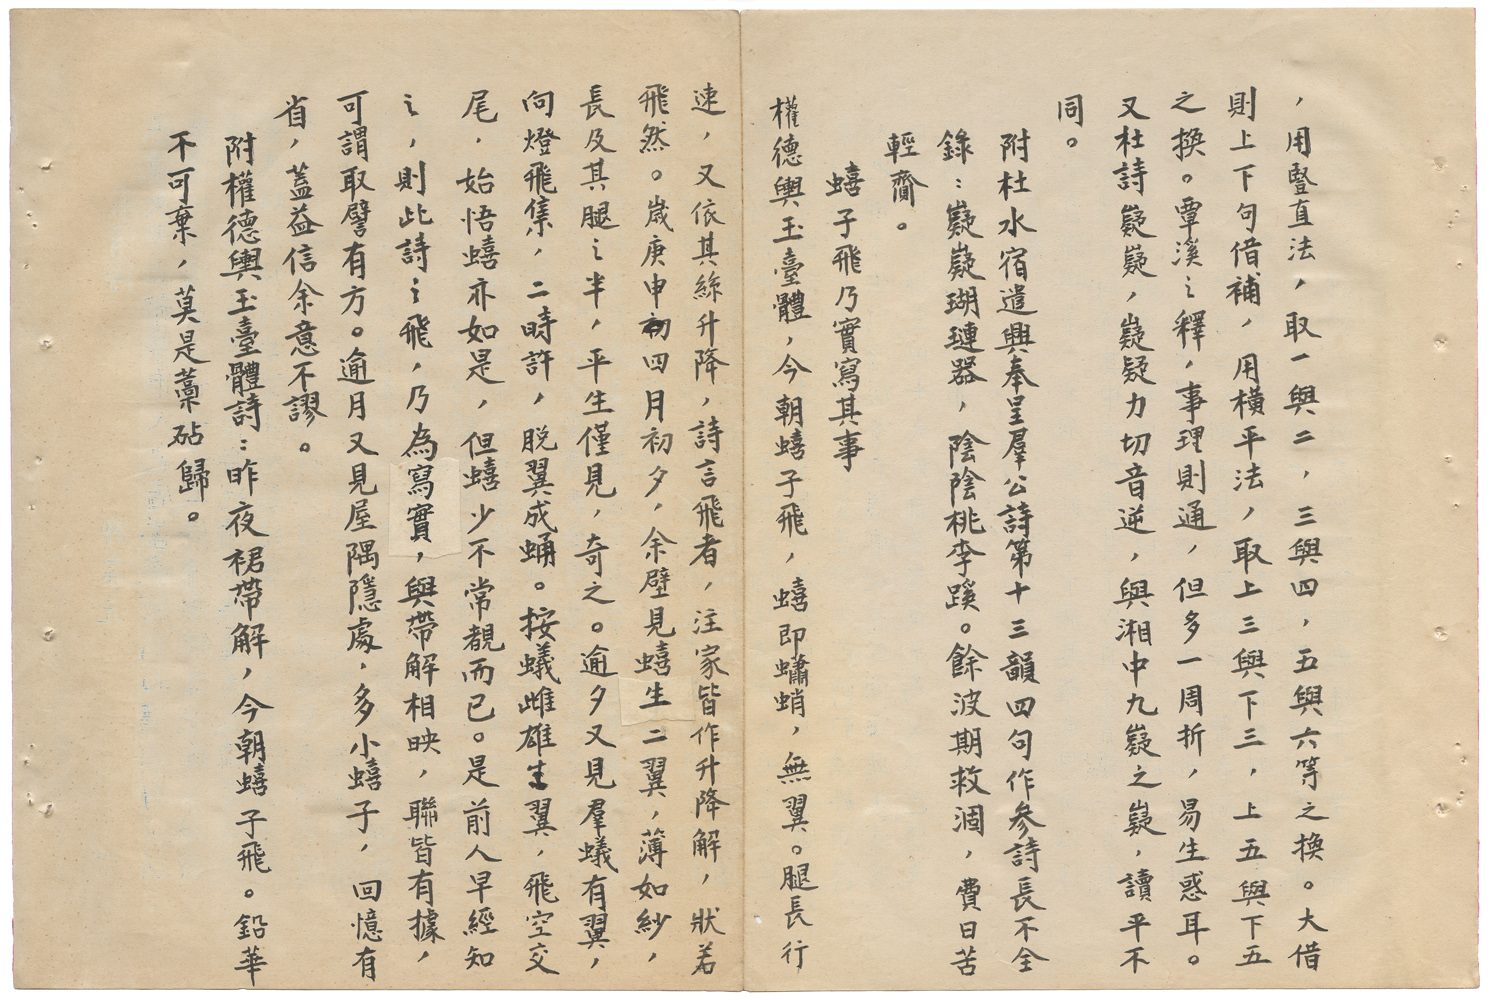 ，用豎直法，取一與二，三與四，五與六等之換。大借
則上下句借補，用橫平法，取上三與下三，上五與下五
之換。覃溪之釋，事理則通，但多一周折，易生惑耳。
又杜詩嶷嶷，嶷疑力切音逆，與湘中九嶷之嶷，讀平不
同。
附杜水宿遣興奉呈羣公詩第十三韻四句作參詩長不全
錄：嶷嶷瑚璉器，陰陰桃李蹊。餘波期救涸，費日苦
輕齎。
蟢子飛乃實寫其事
權德輿玉臺體，今朝蟢子飛，蟢即蠨蛸，無翼。腿長行
速，又依其絲升降，詩言飛者，注家皆作升降解，狀若
飛然。歲庚申初四月初夕，余壁見蟢生二翼，薄如紗，
長及其腿之半，平生僅見，奇之。逾夕又見羣蟻有翼，
向燈飛集，二時許，脫翼成蛹。按蟻雌雄生翼，飛空交
尾，始悟蟢亦如是，但蟢少不常覩而已。是前人早經知
之，則此詩之飛，乃為寫實，與帶解相映，聯皆有據，
可謂取譬有方。逾月又見屋隅隱處，多小蟢子，回憶有
省，蓋益信余意不謬。
附權德輿玉臺體詩：昨夜裙帶解，今朝蟢子飛。鉛華
不可棄，莫是藁砧歸。